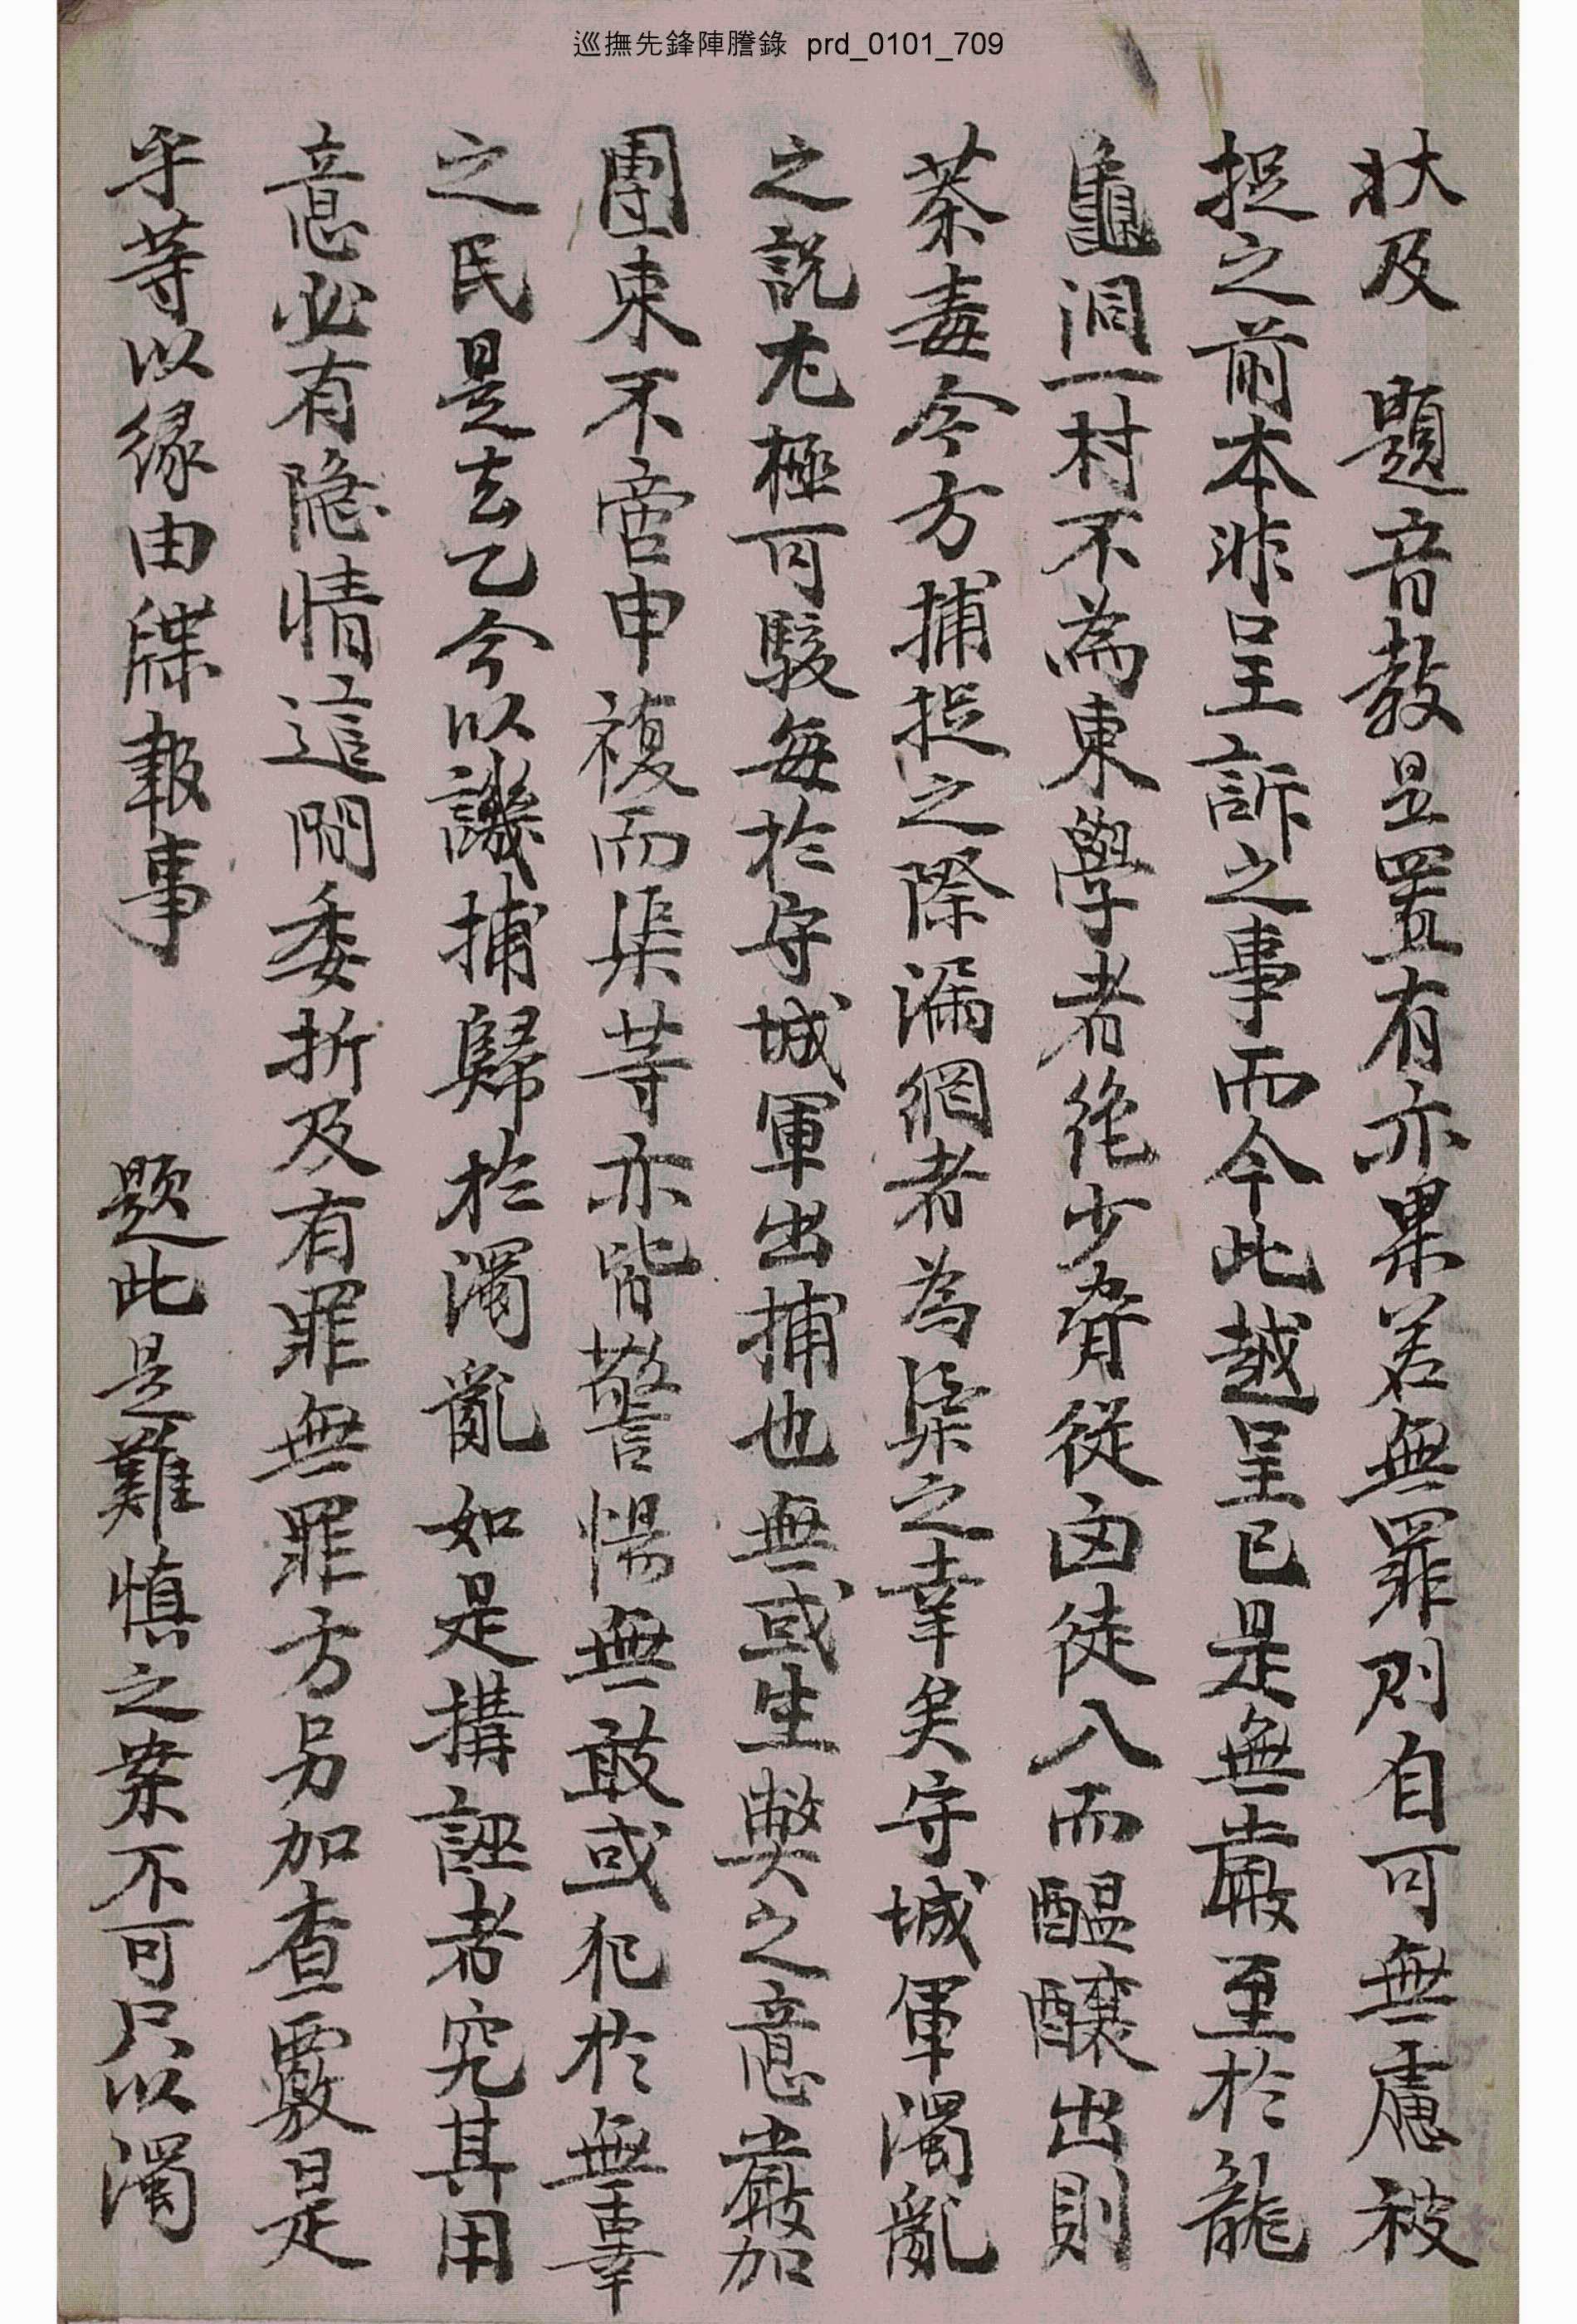 巡撫先鋒陣謄錄 prd_0101_709
狀及 題音教是置有亦果若無罪則自可無慮被
捉之前本非呈訴之事而今此越呈已是無嚴至於龍
龜洞一村不為東學者絶少脅從囪徒入而醞釀出則
荼毒今方捕捉之際漏網者為渠之幸矣守城軍濁亂
之說尤極可駭每於守城軍出捕也無或生獘之意嚴加
團束不啻申複而渠等亦皆警惕無敢或犯於無辜
之民是去乙今以譏捕歸於濁亂如是搆誣者究其用
意必有隐情這間委折及有罪無罪方另加查覈是
乎等以緣由牒報事 題此是難慎之案不可只以濁